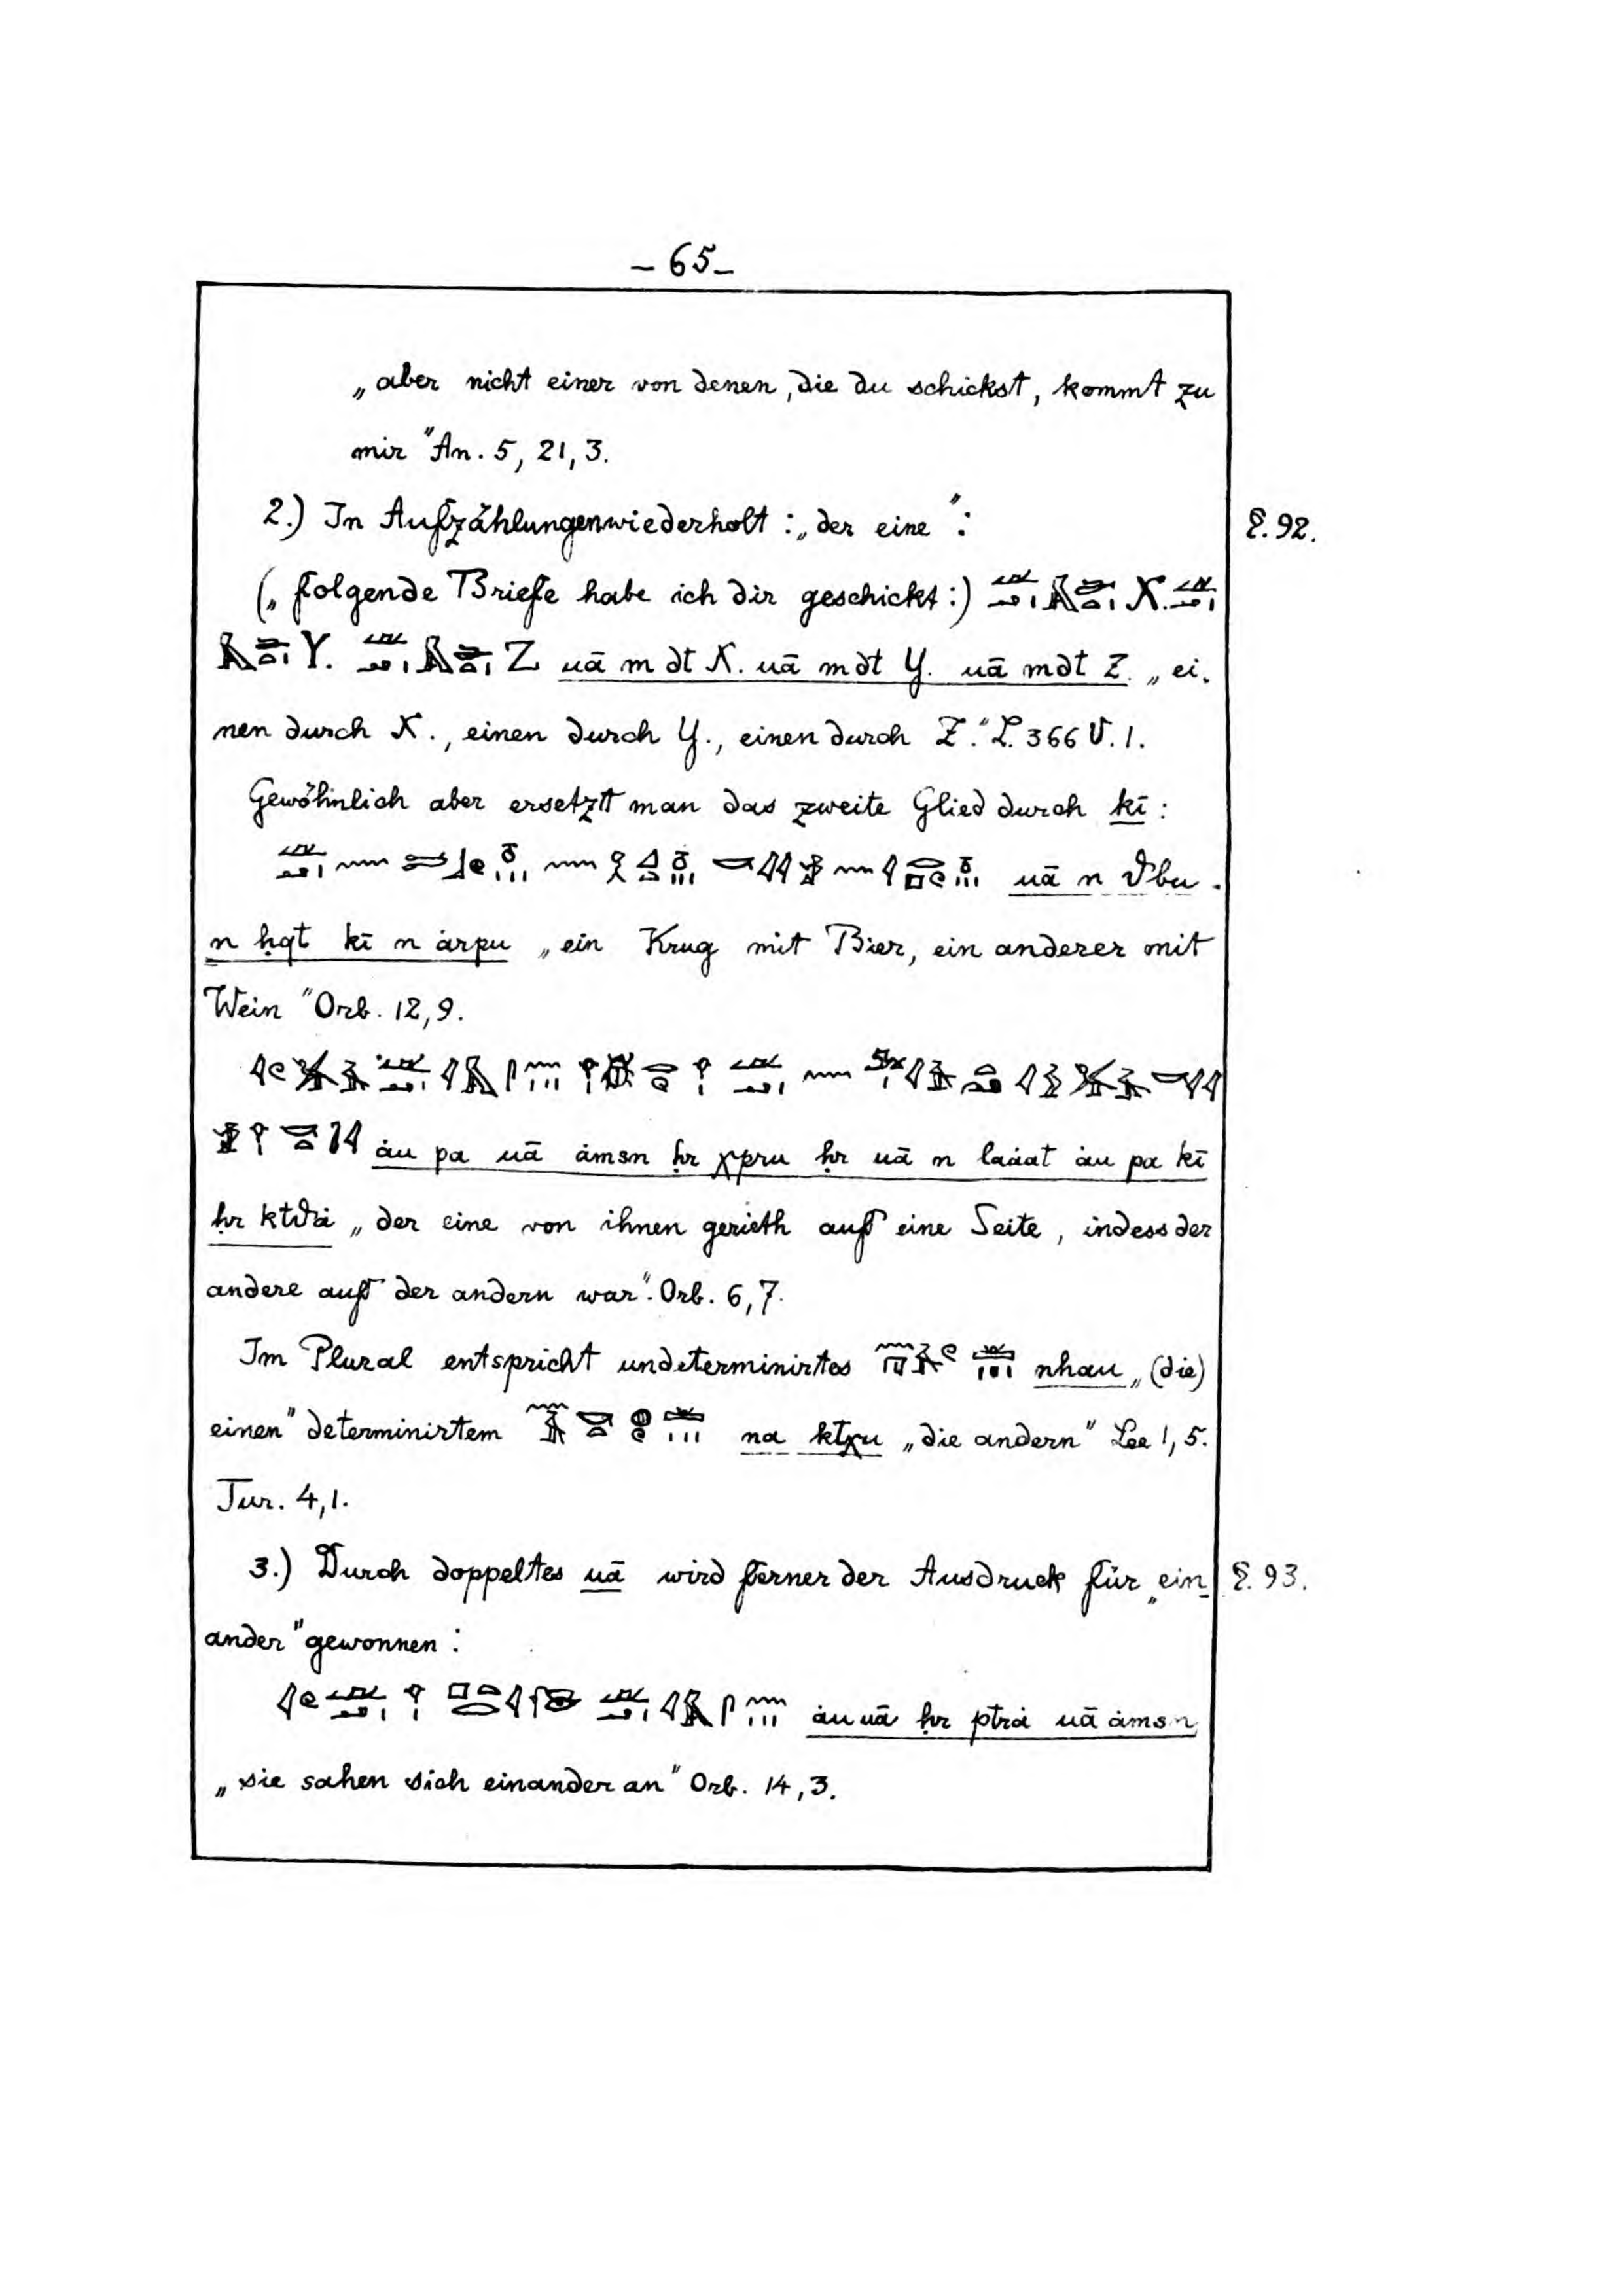 – 65 –
„aber nicht einer von denen, die du schickst, kommt zu
mir" An. 5, 21, 3.
2.) In Aufzählungen wiederholt: „der eine": §. 92.
(„folgende Briefe habe ich dir geschickt:) X.
Y. Z uā m dt X. uā m dt Y. uā m dt Z. „ei-
nen durch X., einen durch Y., einen durch Z." L. 366 V. 1.
Gewöhnlich aber ersetzt man das zweite Glied durch kī:
uā n ϑbu
n ḥqt kī n ȧrpu „ein Krug mit Bier, ein anderer mit
Wein" Orb. 12, 9.
ȧu pa uā ȧmsn ḥr χpru ḥr uā n laȧat ȧu pa kī
ḥr ktϑȧ „der eine von ihnen gerieth auf eine Seite, indess der
andere auf der andern war". Orb. 6, 7.
Im Plural entspricht undeterminirtes nhau „(die)
einen" determinirtem na ktχu „die andern" Lee 1, 5.
Tur. 4, 1.
3.) Durch doppeltes uā wird ferner der Ausdruck für „ein- §. 93.
ander" gewonnen:
ȧu uā ḥr ptrȧ uā ȧmsn
„sie sahen sich einander an" Orb. 14, 3.